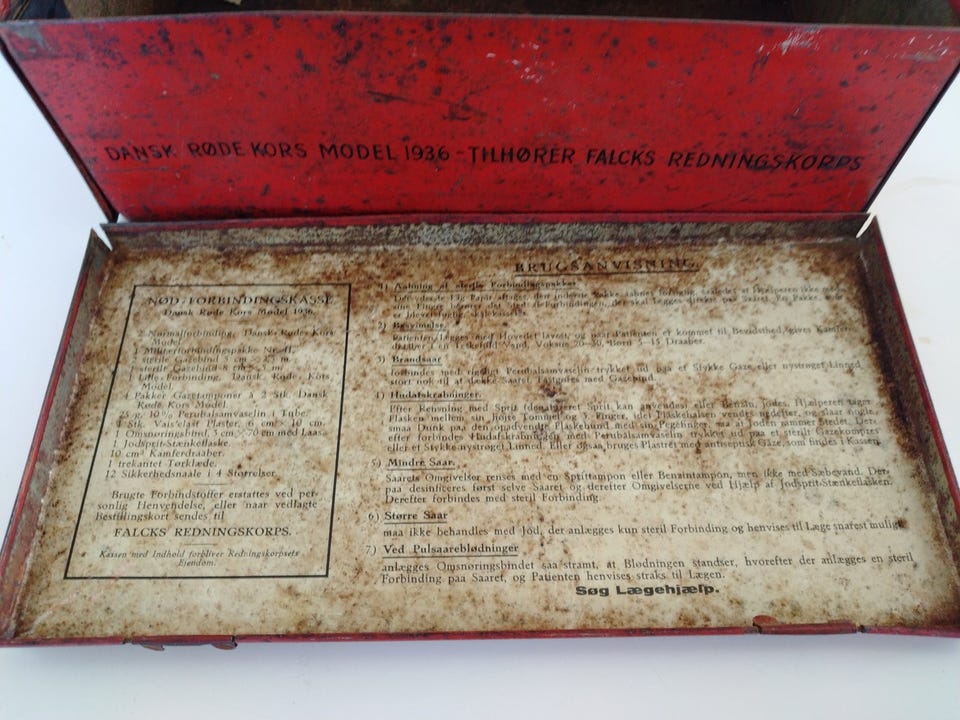 DANSK RØDE KORS MODEL 1936 - TILHØRER FALCKS REDNINGSKORPS
NØD-FORBINDINGSKASSE
Dansk Røde Kors Model 1936.
2 Normalforbinding, Dansk Røde Kors
Model.
1 Militærforbindingspakke Nr. II.
sterile Gazebind 5 cm × 2,5 m.
sterile Gazebind 8 cm × 5 m.
Forbinding, Dansk Røde Kors
Model.
4 Pakker Gazetamponer à 2 Stk. Dansk
Røde Kors Model.
25 g. 10 % Perubalsamvaselin i Tube.
Stk. Plaster, 6 cm × 10 cm.
1 Omsnøringsbind, 5 cm × 70 cm med Laas.
1 Jodsprit-Stænkeflaske.
10 cm³ Kamferdraaber.
1 trekantet Tørklæde.
12 Sikkerhedsnaale i 4 Størrelser.
Brugte Forbindstoffer erstattes ved per-
sonlig Henvendelse, eller naar vedlagte
Bestillingskort sendes til
FALCKS REDNINGSKORPS.
Kassen med Indhold forbliver Redningskorpsets
Ejendom.
BRUGSANVISNING.
1) Aabning af sterile Forbindingspakker.
2) Besvimelse.
Patienten lægges med Hovedet lavest, og naar Patienten er kommet til Bevidsthed, gives Kamfer-
draaber i en Teskefuld Vand, Voksne 20-30, Børn 5-15 Draaber.
3) Brandsaar
forbindes med rigeligt Perubalsamvaselin trykket ud paa et Stykke Gaze eller nystrøget Linned,
stort nok til at dække Saaret. Fastgøres med Gazebind.
4) Hudafskrabninger.
Efter Rensning med Sprit (denatureret Sprit kan anvendes) eller Benzin, jodes. Hjælperen tager
Flasken mellem sin højre Tommel og 3. Finger, idet Flaskehalsen vendes nedefter, og slaar nogle
smaa Dunk paa den opadvendte Flaskebund med sin Pegefinger, saa at Joden rammer Stedet. Der-
efter forbindes Hudafskrabningen med Perubalsamvaselin trykket ud paa et sterilt Gazekompres
eller et Stykke nystrøget Linned. Eller ogsaa bruges Plastret med antiseptisk Gaze, som findes i Kassen.
5) Mindre Saar.
Saarets Omgivelser renses med en Sprittampon eller Benzintampon, men ikke med Sæbevand. Der-
paa desinficeres først selve Saaret og derefter Omgivelserne ved Hjælp af Jodsprit-Stænkeflasken.
Derefter forbindes med steril Forbinding.
6) Større Saar
maa ikke behandles med Jod, der anlægges kun steril Forbinding og henvises til Læge snarest muligt.
7) Ved Pulsaareblødninger
anlægges Omsnøringsbindet saa stramt, at Blødningen standser, hvorefter der anlægges en steril
Forbinding paa Saaret, og Patienten henvises straks til Lægen.
Søg Lægehjælp.